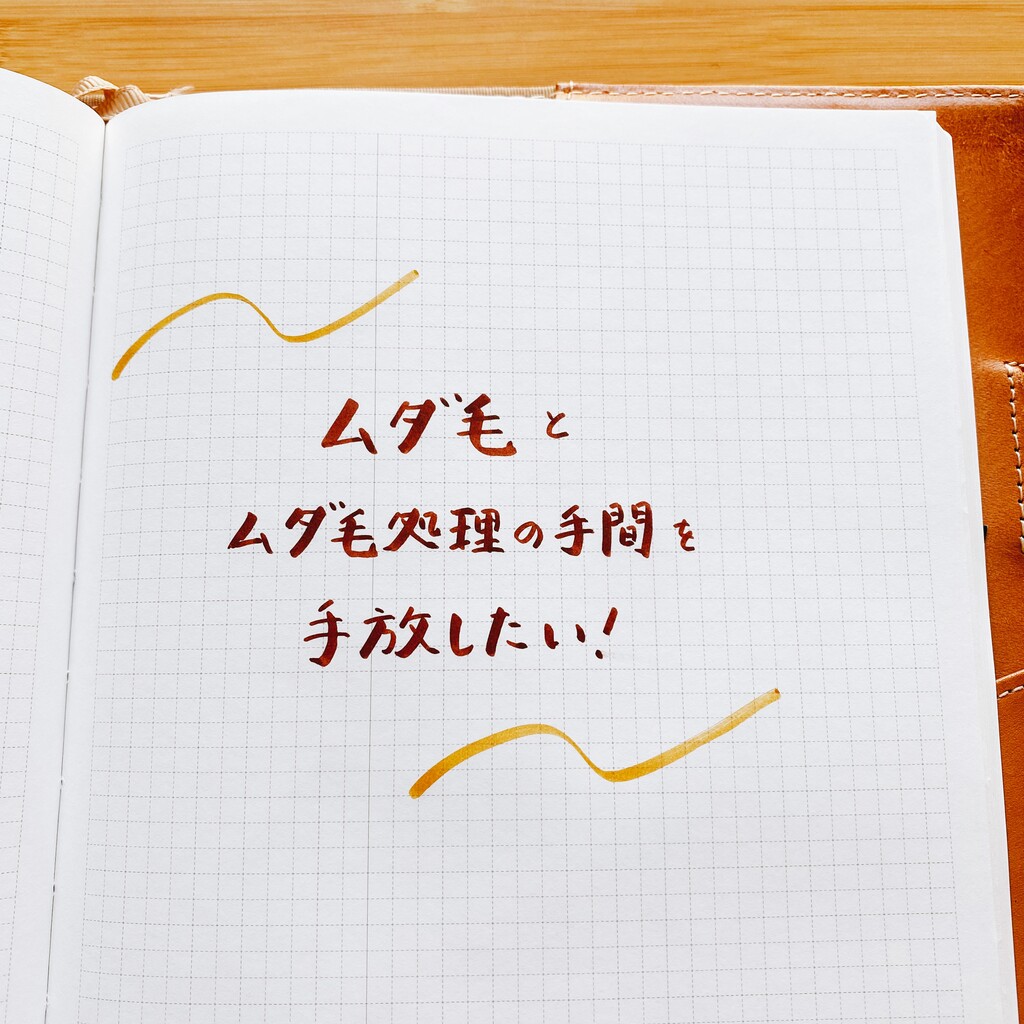 ムダ毛と
ムダ毛処理の手間を
手放したい！